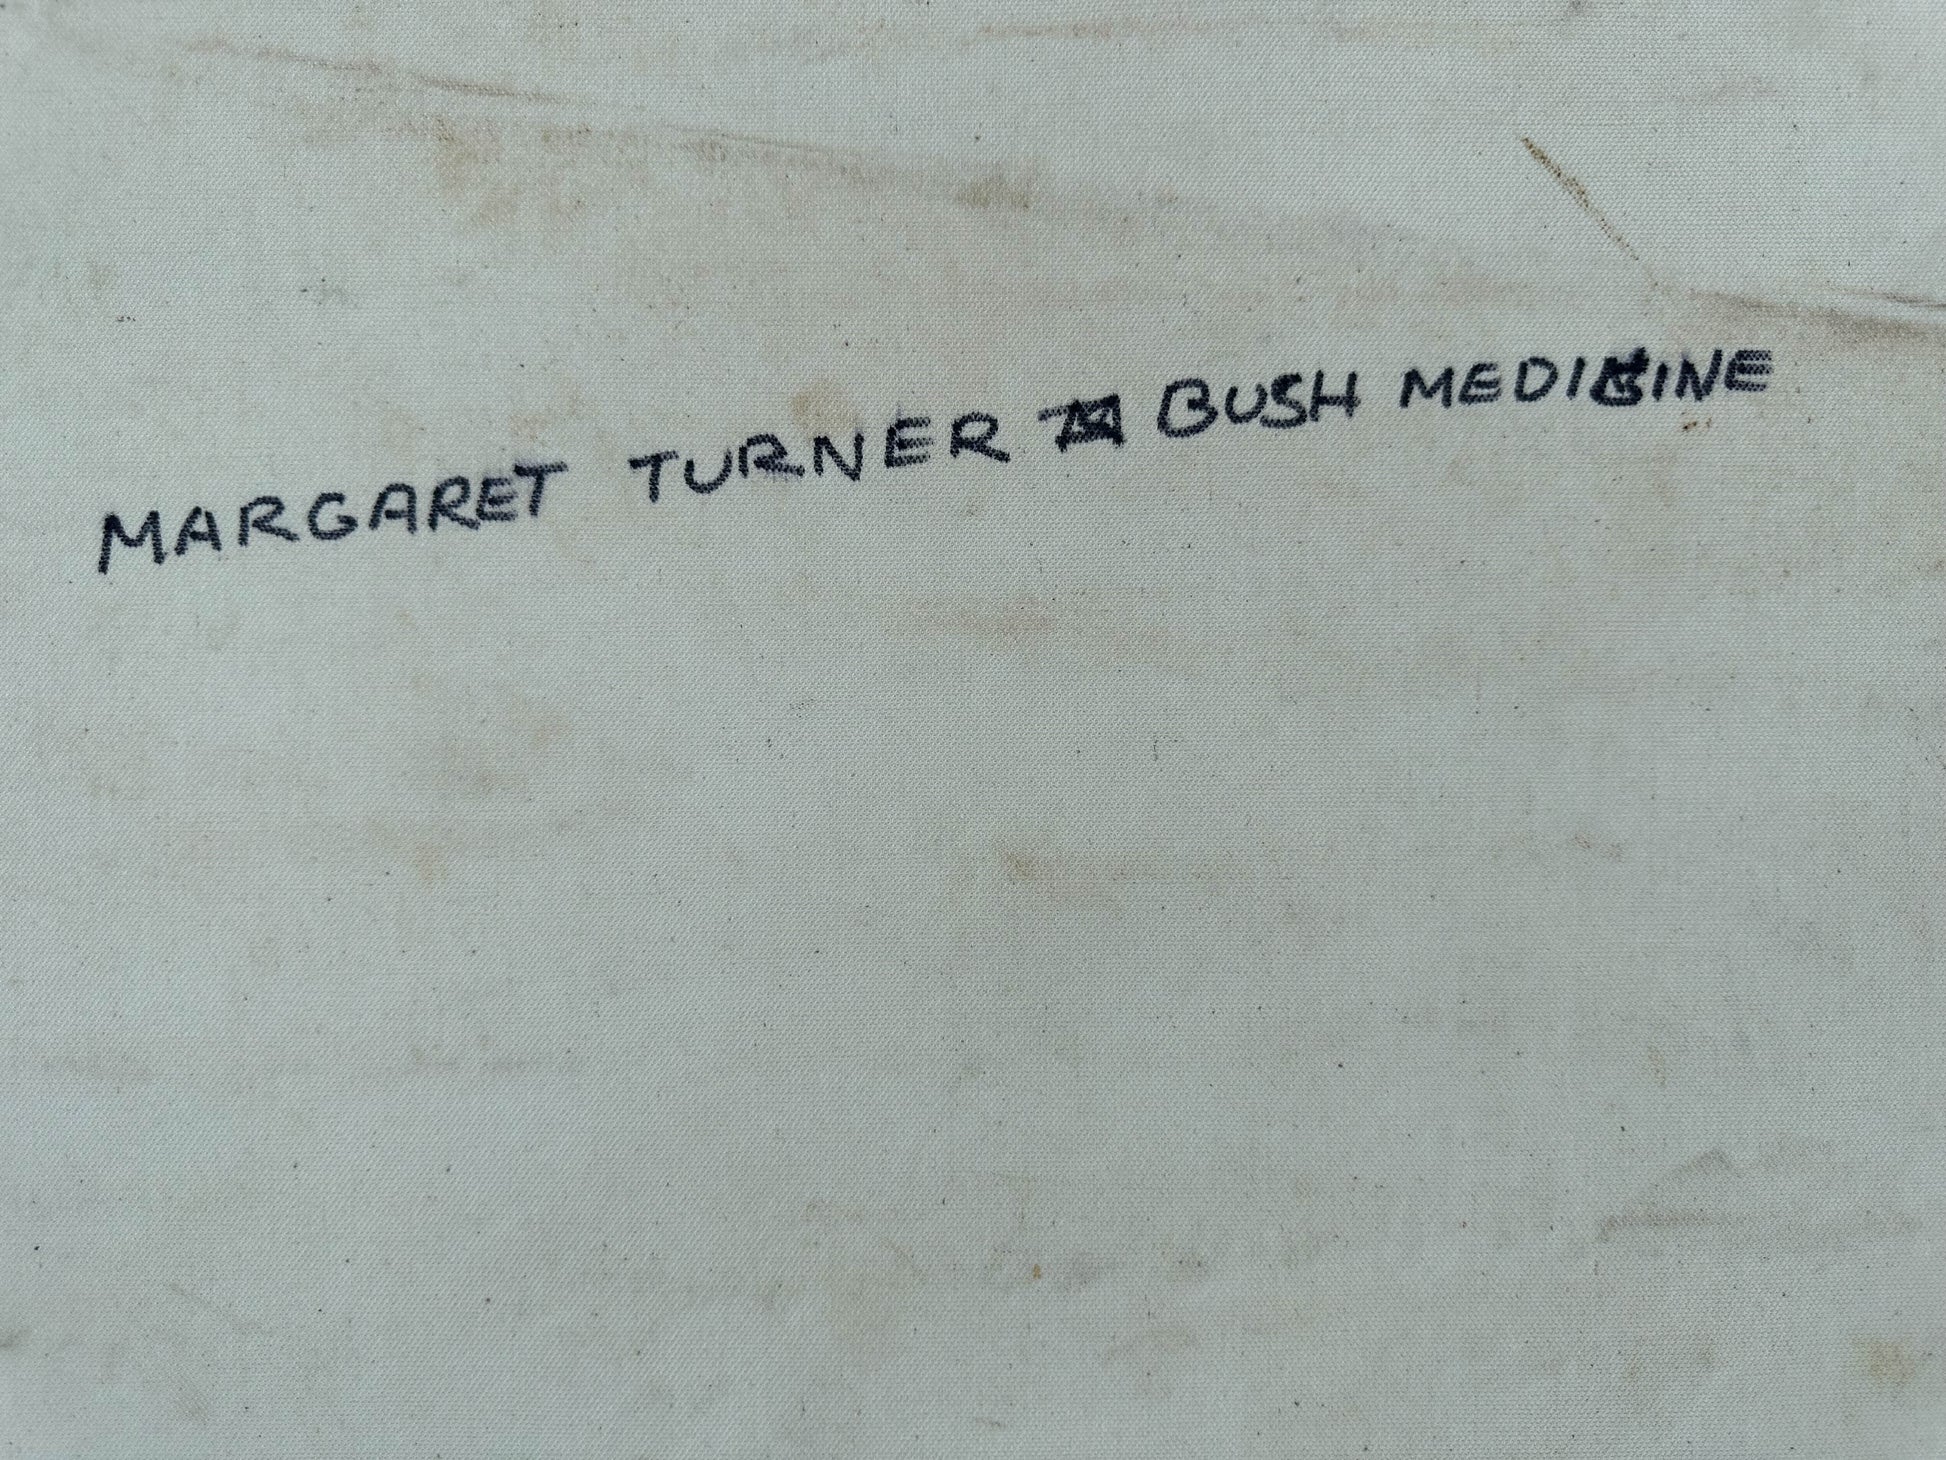 MARGARET TURNER BUSH MEDICINE